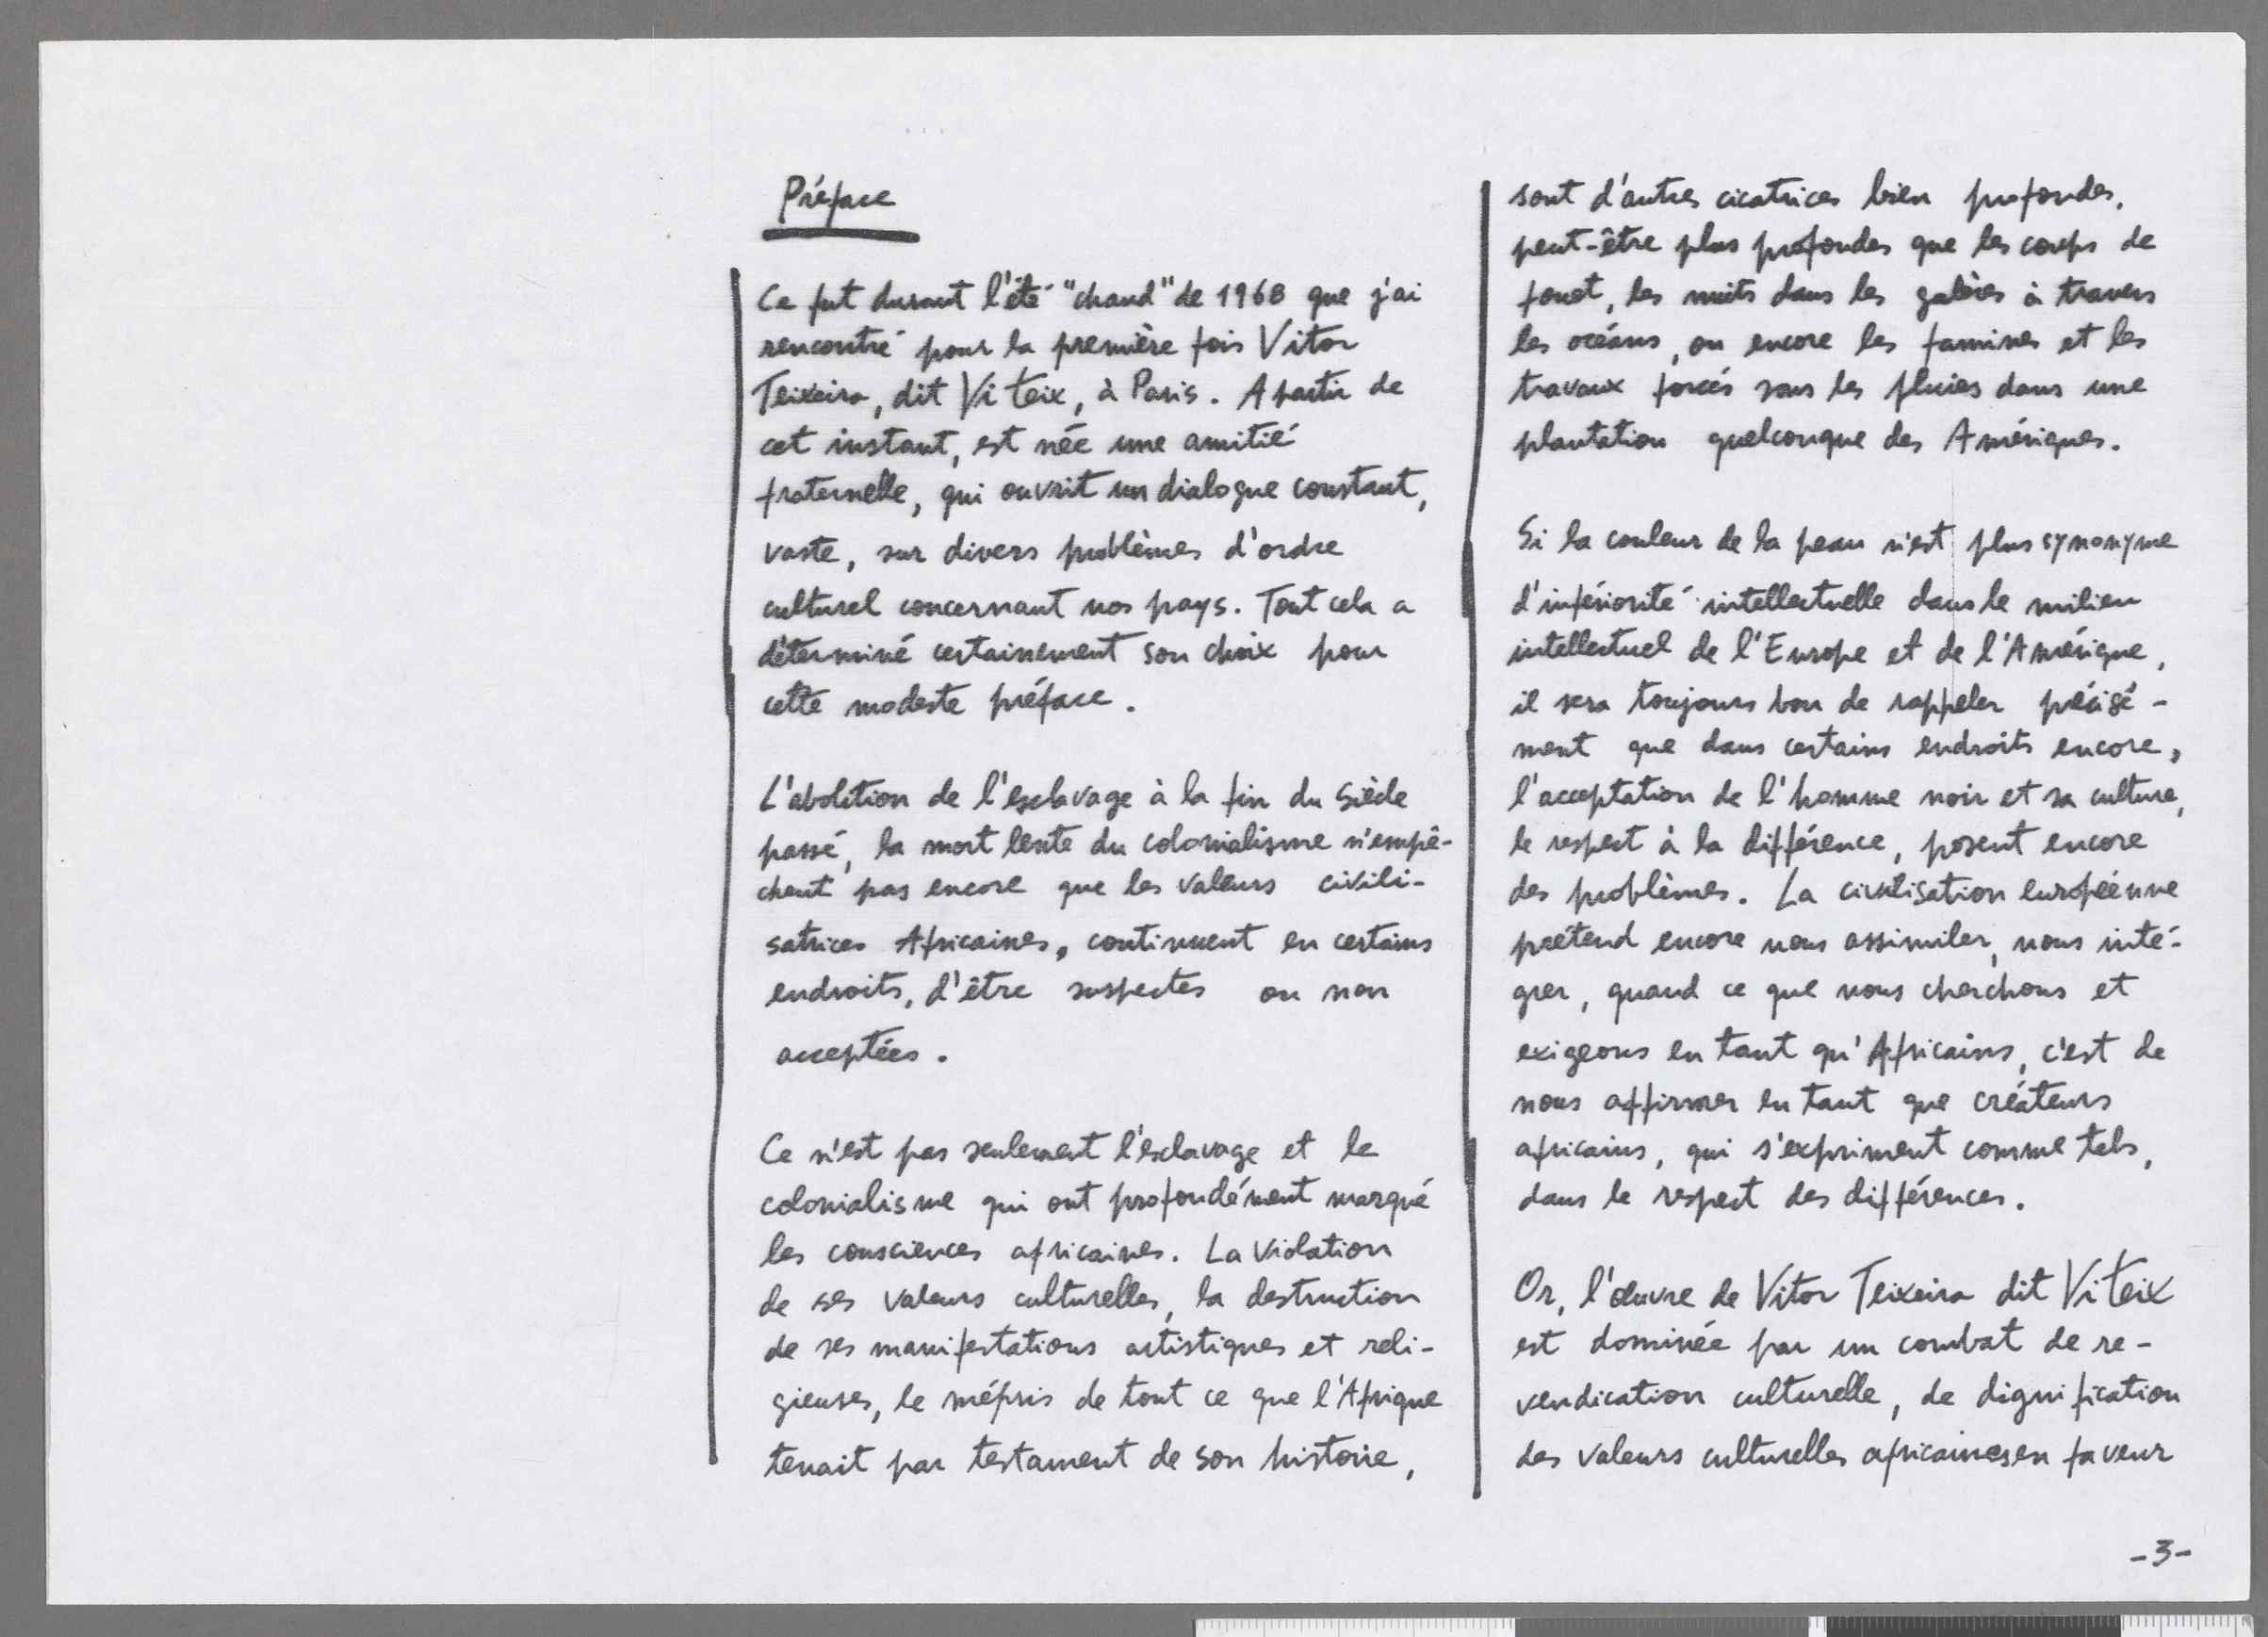 Préface
Ce fut durant l'été "chaud" de 1968 que j'ai
rencontré pour la première fois Vitor
Teixeira, dit Viteix, à Paris. A partir de
cet instant, est née une amitié
fraternelle, qui ouvrit un dialogue constant,
vaste, sur divers problèmes d'ordre
culturel concernant nos pays. Tout cela a
déterminé certainement son choix pour
cette modeste préface.
L'abolition de l'esclavage à la fin du siècle
passé, la mort lente du colonialisme n'empê-
chent pas encore que les valeurs civili-
satrices Africaines, continuent en certains
endroits, d'être suspectes ou non
acceptées.
Ce n'est pas seulement l'esclavage et le
colonialisme qui ont profondément marqué
les consciences africaines. La violation
de ses valeurs culturelles, la destruction
de ses manifestations artistiques et reli-
gieuses, le mépris de tout ce que l'Afrique
tenait par testament de son histoire,
sont d'autres cicatrices bien profondes,
peut-être plus profondes que les coups de
fouet, les nuits dans les galères à travers
les océans, ou encore les famines et les
travaux forcés sous les pluies dans une
plantation quelconque des Amériques.
Si la couleur de la peau n'est plus synonyme
d'infériorité intellectuelle dans le milieu
intellectuel de l'Europe et de l'Amérique,
il sera toujours bon de rappeler précisé-
ment que dans certains endroits encore,
l'acceptation de l'homme noir et sa culture,
le respect à la différence, posent encore
des problèmes. La civilisation européenne
prétend encore nous assimiler, nous inté-
grer, quand ce que nous cherchons et
exigeons en tant qu'Africains, c'est de
nous affirmer en tant que créateurs
africains, qui s'expriment comme tels,
dans le respect des différences.
Or, l'œuvre de Vitor Teixeira dit Viteix
est dominée par un combat de re-
vendication culturelle, de dignification
des valeurs culturelles africaines en faveur
-3-